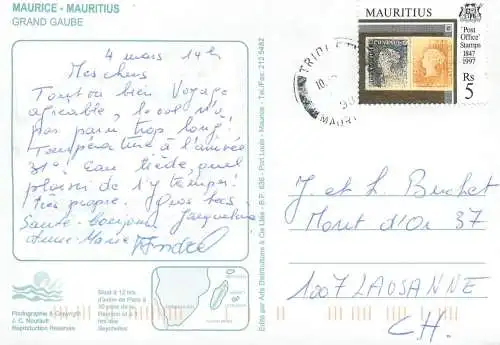 MAURICE - MAURITIUS
GRAND GAUBE
4 mars 14h
Mes chers
Tout va bien Voyage
agréable, le vol n'a
pas paru trop long!
Température à l'arrivée
31°! Eau tiède, quel
plaisir de s'y tremper!
Très propre. Gros becs
Jacqueline
Anne-Marie André
Photographie ©
J. C. Nourault
Reproduction Réservée
Situé à 12 hrs
d'avion de Paris à
Réunion et à 1
hrs des
Seychelles
Edité par Arts Distributions & Cie Ltée - B.P. 636 - Port Louis - Maurice - Tel./Fax: 212 5482
MAURITIUS
'Post
Office'
Stamps
1847
1997
Rs
5
J. et L. Buchet
Mont d'Or 37
1007 LAUSANNE
CH.